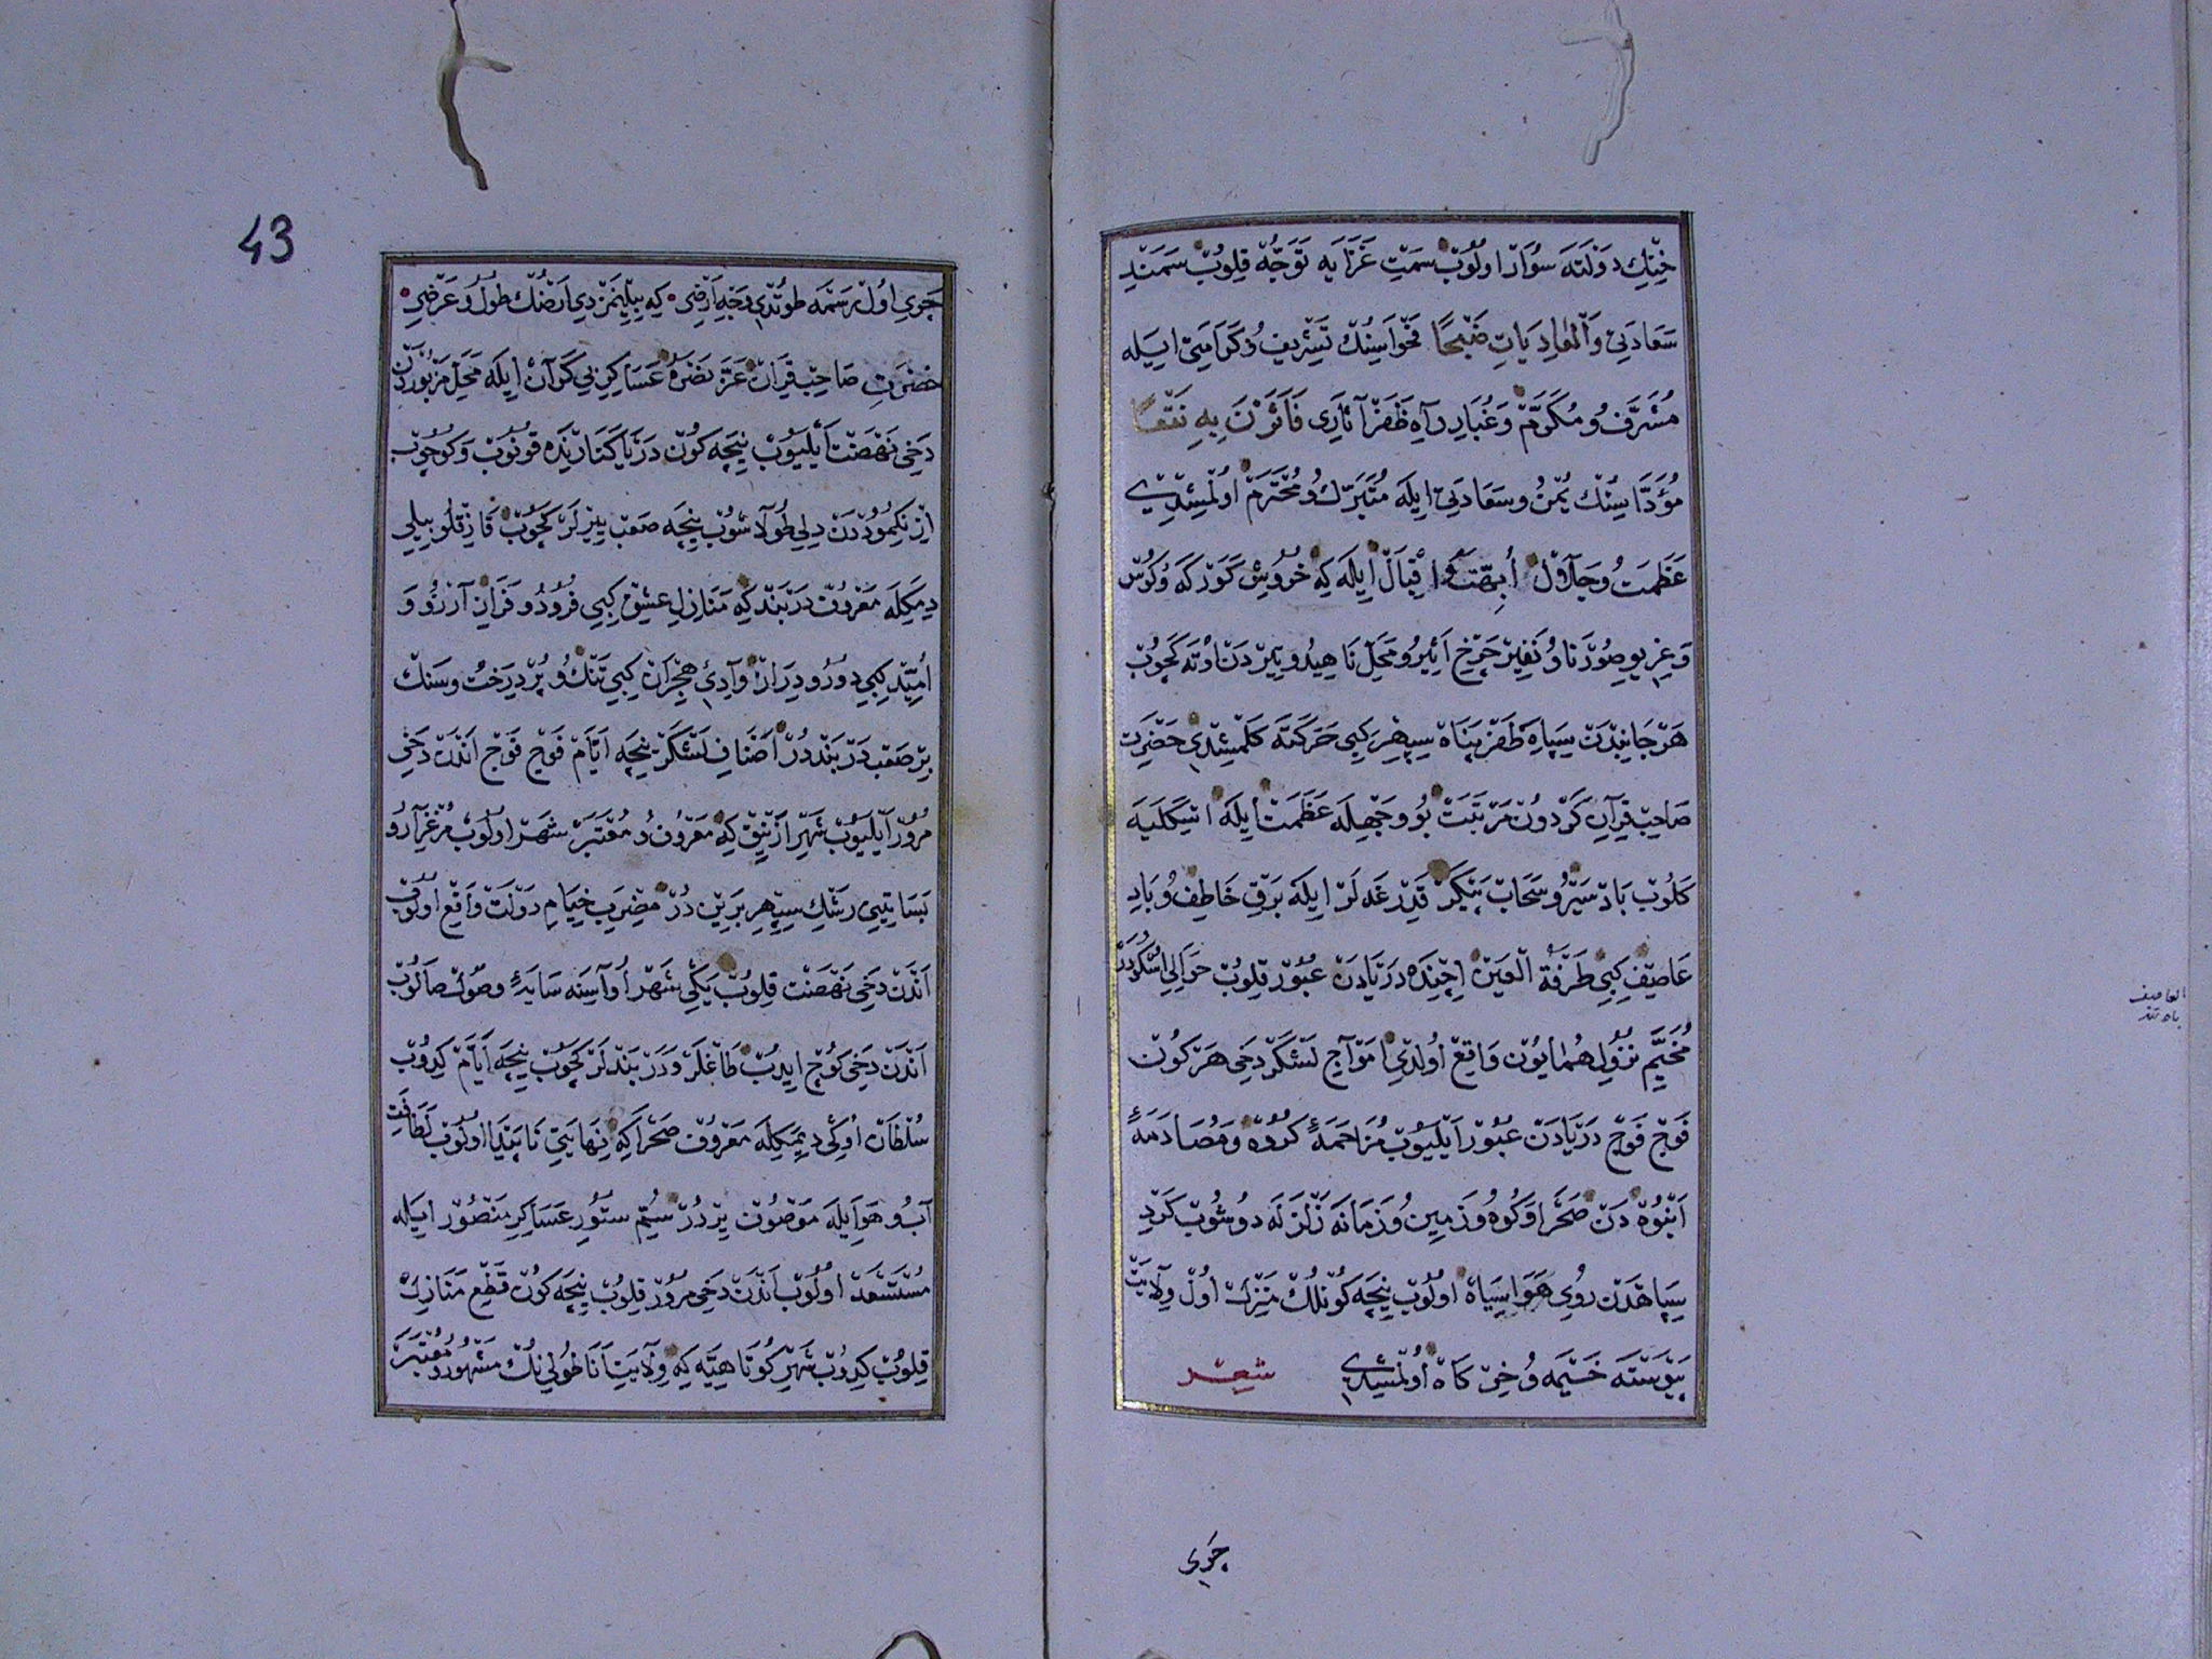 خِنْكِ دَوْلَتَه سُوَارْ اولُوبْ سَمْتِ غَزَايَه تَوَجُّهْ قِلُوبْ سَمَنْدِ
سَعَادَتِ وَالْعَادِيَاتِ ضَبْحًا فَحْوَاسِنُكْ تَشْرِيفُ وُكَرَامَتِى ايله
مُشَرَّفُ و مُكَرَّمْ وَغُبَارِ رَاهِ ظَفَرْ آثَارِى فَأَثَرْنَ بِهِ نَقْعًا
مُؤَدَّاسِنُكْ يُمْنُ وسَعَادَتِى ايلَه مُتَبَرِّكُ و مُحْتَرَمْ اولْمِشْدِى
عَظَمَتُ وجَلَالْ أُبَّهَتُ و اِقْبَالْ ايلَه كِه خُرُوشِ كَوَرْكَه وُكُوسْ
وَغِرِيوِ صُورْنَا وُ نَفِيرْ چَرْخِ اَثِيرُ و مَحَلِّ نَاهِيدُ و تِيرْدَنْ اوتَه كَچُوبْ
هَرْ جَانِبْدَنْ سِپَاهِ ظَفَرْ پَنَاهْ سِپِهْرْ كِبِى حَرَكَتَه كَلْمِشْدِى حَضْرَتِ
صَاحِبْ قِرَانِ كَرْدُونْ مَرْتَبَتْ بُو وَجْهِلَه عَظَمَتْ ايلَه اسْكَلَيَه
كَلُوبْ بَادْ سَيْرُ و سَحَابْ پَيْكَرْ قَدِرْغَه لَرْ ايلَه بَرْقِ خَاطِفُ وُبَادِ
عَاصِفْ كِبِى طَرْفَةُ الْعَيْنْ اِچِنْدَه دَرْيَادَنْ عُبُورْ قِلُوبْ حَوَالِى اُسْكُدَرْ
مُخَيَّمِ نُزُولِ هُمَايُونْ وَاقِعْ اُولْدِى اَمْوَاجِ لَشْكَرْ دَخِى هَرْ كُونْ
فَوْجْ فَوْجْ دَرْيَادَنْ عُبُورْ اَيْلَيُوبْ مُزَاحَمَۀِ كُرُوهْ وَمُصَادَمَۀِ
اَنْبُوهْدَنْ صَحْرَا وَكُوهُ و زَمِينُ و زَمَانَه زَلْزَلَه دوشُوبْ كَرْدِ
سِپَاهْدَنْ رُوىِ هَوَا سِيَاهْ اولُوبْ نِيچَه كُونْلُكْ مَنْزِلْ اُولْ وِلَايَتْ
پَيْوَسْتَه خَيْمَه وُ خِرْكَاهْ اُولْمِشْدِى شعر
چرى
العاصف
باد تند
43
چَرِى اُولْ رَسْمَه طُوتْدِى وَجْهِ اَرْضِى كِه بِيلِنْمَزْدِى اَرْضُكْ طُولُ و عَرْضِى
حَضْرَتِ صَاحِبْ قِرَانْ عَزَّ نَصْرُهُ عَسَاكِرِ بِى كَرَانْ ايلَه مَحَلِّ مَزْبُورْدَنْ
دَخِى نَهْضَتْ اَيْلَيُوبْ نِيچَه كُونْ دَرْيَا كَنَارِنْدَه قونُوبْ وَكوچُوبْ
اِزْنِكْمُودْدَنْ دِلِى طُولَاشُوبْ نِيچَه صَعْبْ يِيرْلَرْ كَچُوبْ قَازِقْلُو بِيلِى
دِمَكِلَه مَعْرُوفْ دَرْبَنْدْ كِه مَنَازِلِ عِشْقْ كِبِى فُرُودُ و فَرَازْ آرْزُو وَ
اُمِّيدْ كِبِى دُورُ و دِرَازْ وَادِىِٔ هِجْرَانْ كِبِى تَنْكُ و پُرْ دِرَخْتُ وسَنْكْ
بِرْ صَعْبْ دَرْبَنْدْدُرْ اَصْنَافِ لَشْكَرْ نِيچَه اَيَّامْ فَوْجْ فَوْجْ اَنْدَنْ دَخِى
مُرُورْ اَيْلَيُوبْ شَهْرِ اَزْنِيقْ كِه مَعْرُوفُ و مُعْتَبَرْ شَهْرْ اولُوبْ مَرْغْزَارُ و
بَسَاتِينِى رَشْكِ سِپِهْرِ بَرِينْدُرْ مَضْرِبِ خِيَامِ دَوْلَتْ وَاقِعْ اولُوبْ
اَنْدَنْ دَخِى نَهْضَتْ قِلُوبْ يَكِى شَهْرْ اُوَاسِنَه سَايَۀِ وصُولْ صَالُوبْ
اَنْدَنْ دَخِى كُوچْ ايدُبْ طَاغْلَرْ وَ دَرْبَنْدْلَرْ كَچُوبْ نِيچَه اَيَّامْ كِيدُوبْ
سُلْطَانْ اُوكِى دِيمَكِلَه مَعْرُوفْ صَحْرَا كِه نِهَايَتِى نَاپَيْدَا اولُوبْ لَطَافَتِ
آبُ و هَوَايلَه مَوْصُوفْ يِرْدُرْ سُمِّ سُتُورِ عَسَاكِرِ مَنْصُورْ ايله
مُسْتَسْعَدْ اولُوبْ اَنْدَنْ دَخِى مُرُورْ قِلُوبْ نِيچَه كُونْ قَطْعِ مَنَازِلْ
قِلُوبْ كِيدُبْ شَهْرِ كُوتَاهِيَه كِه وِلَايَتِ اَنَاطُولِى نُكْ مَشْهُورُ و مُعْتَبَرْ